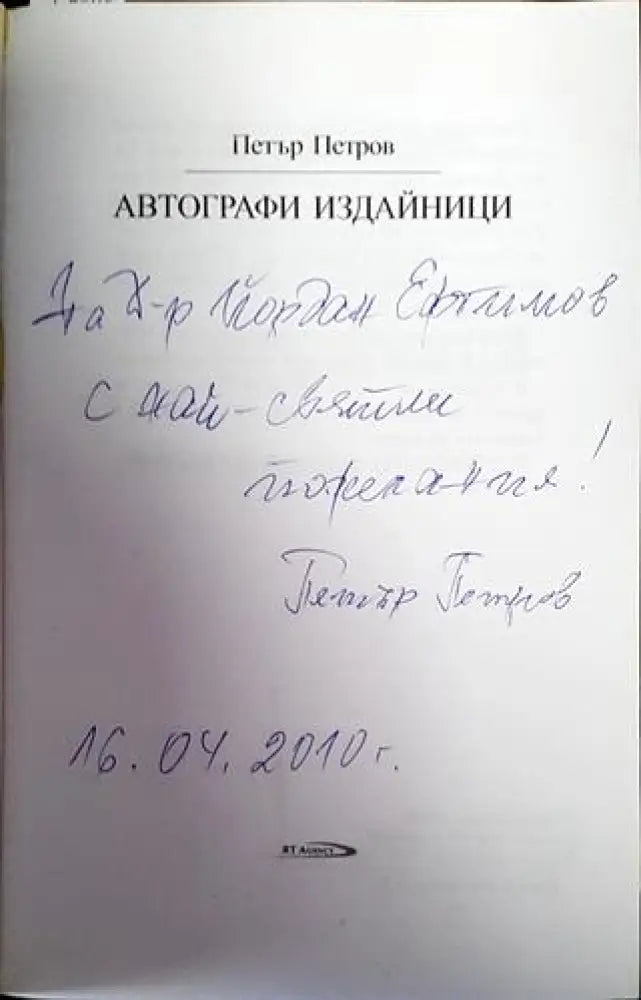 Петър Петров
АВТОГРАФИ ИЗДАЙНИЦИ
На д-р Йордан Ефтимов
с най-святли
пожелания!
Петър Петров
16.04.2010 г.